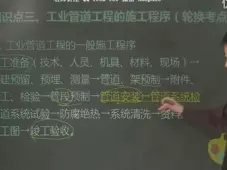 识点三、工业管道工程的施工程序（轮换考点
、工业管道工程的一般施工程序
工准备（技术、人员、机具、材料、现场）→
预留、预埋、测量→管道、架预制→附件、
工、检验→管段预制→管道安装→管道系统检
道系统试验→防腐绝热→系统清洗→资料
工图→竣工验收。